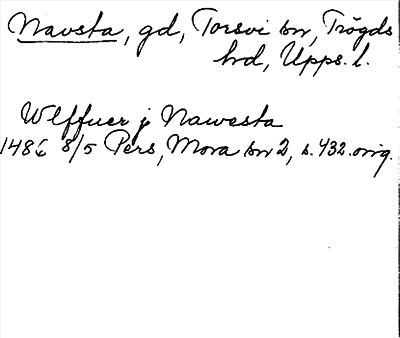 Navsta, gd, Torsvi sn, Trögds
hd, Upps. l.
Wlffuer j Nawesta
1486 8/5 Pers, Mora bn 2, s. 432. orig.